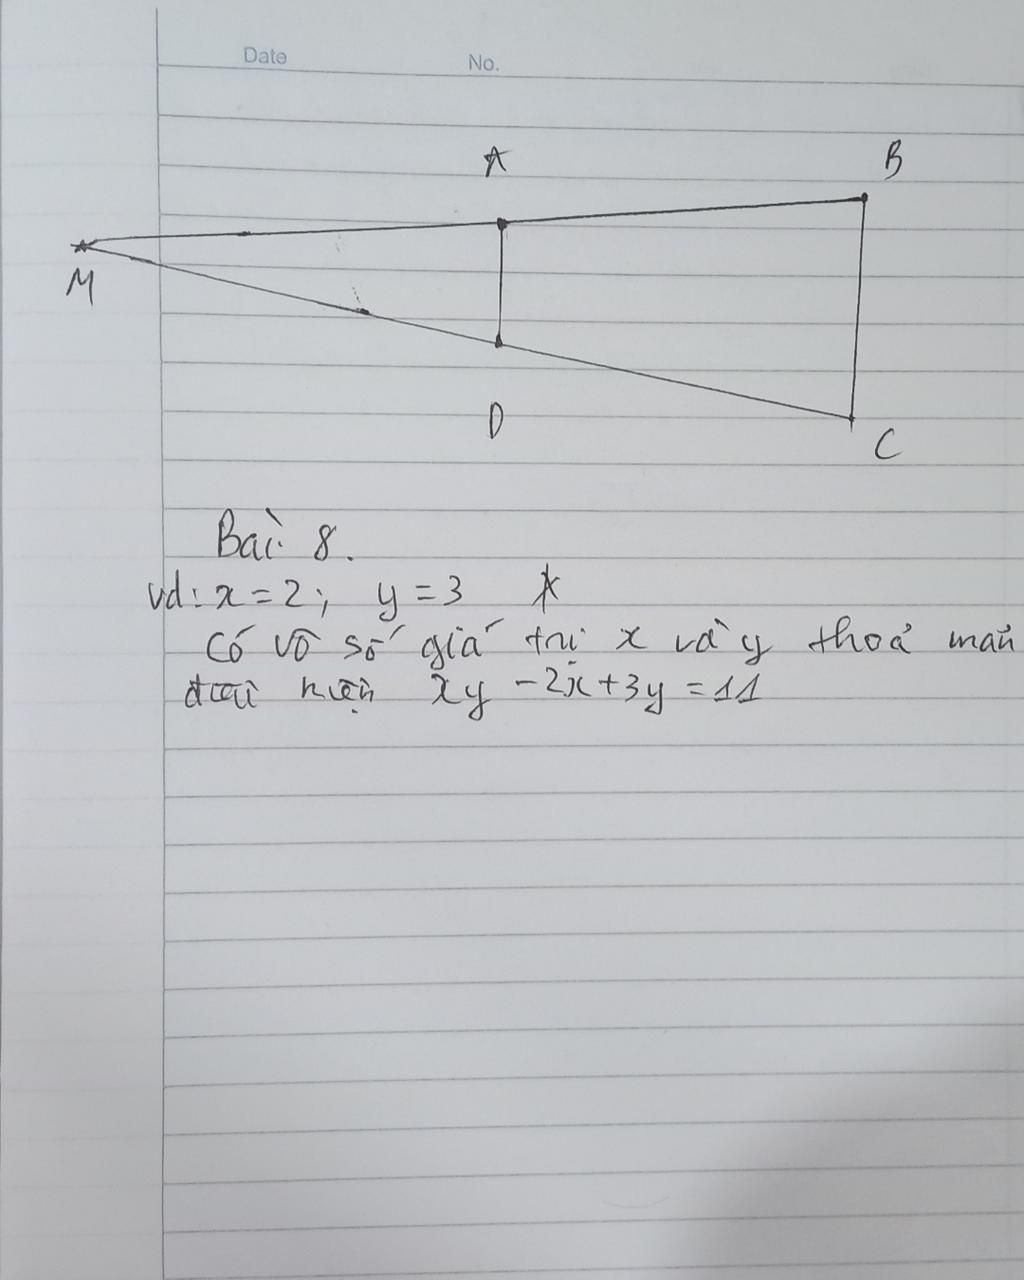 Date No.
A B
M
D C
Bài 8.
vd: x = 2; y = 3
Có vô số giá trị x và y thoả mãn
điều kiện xy - 2x + 3y = 11